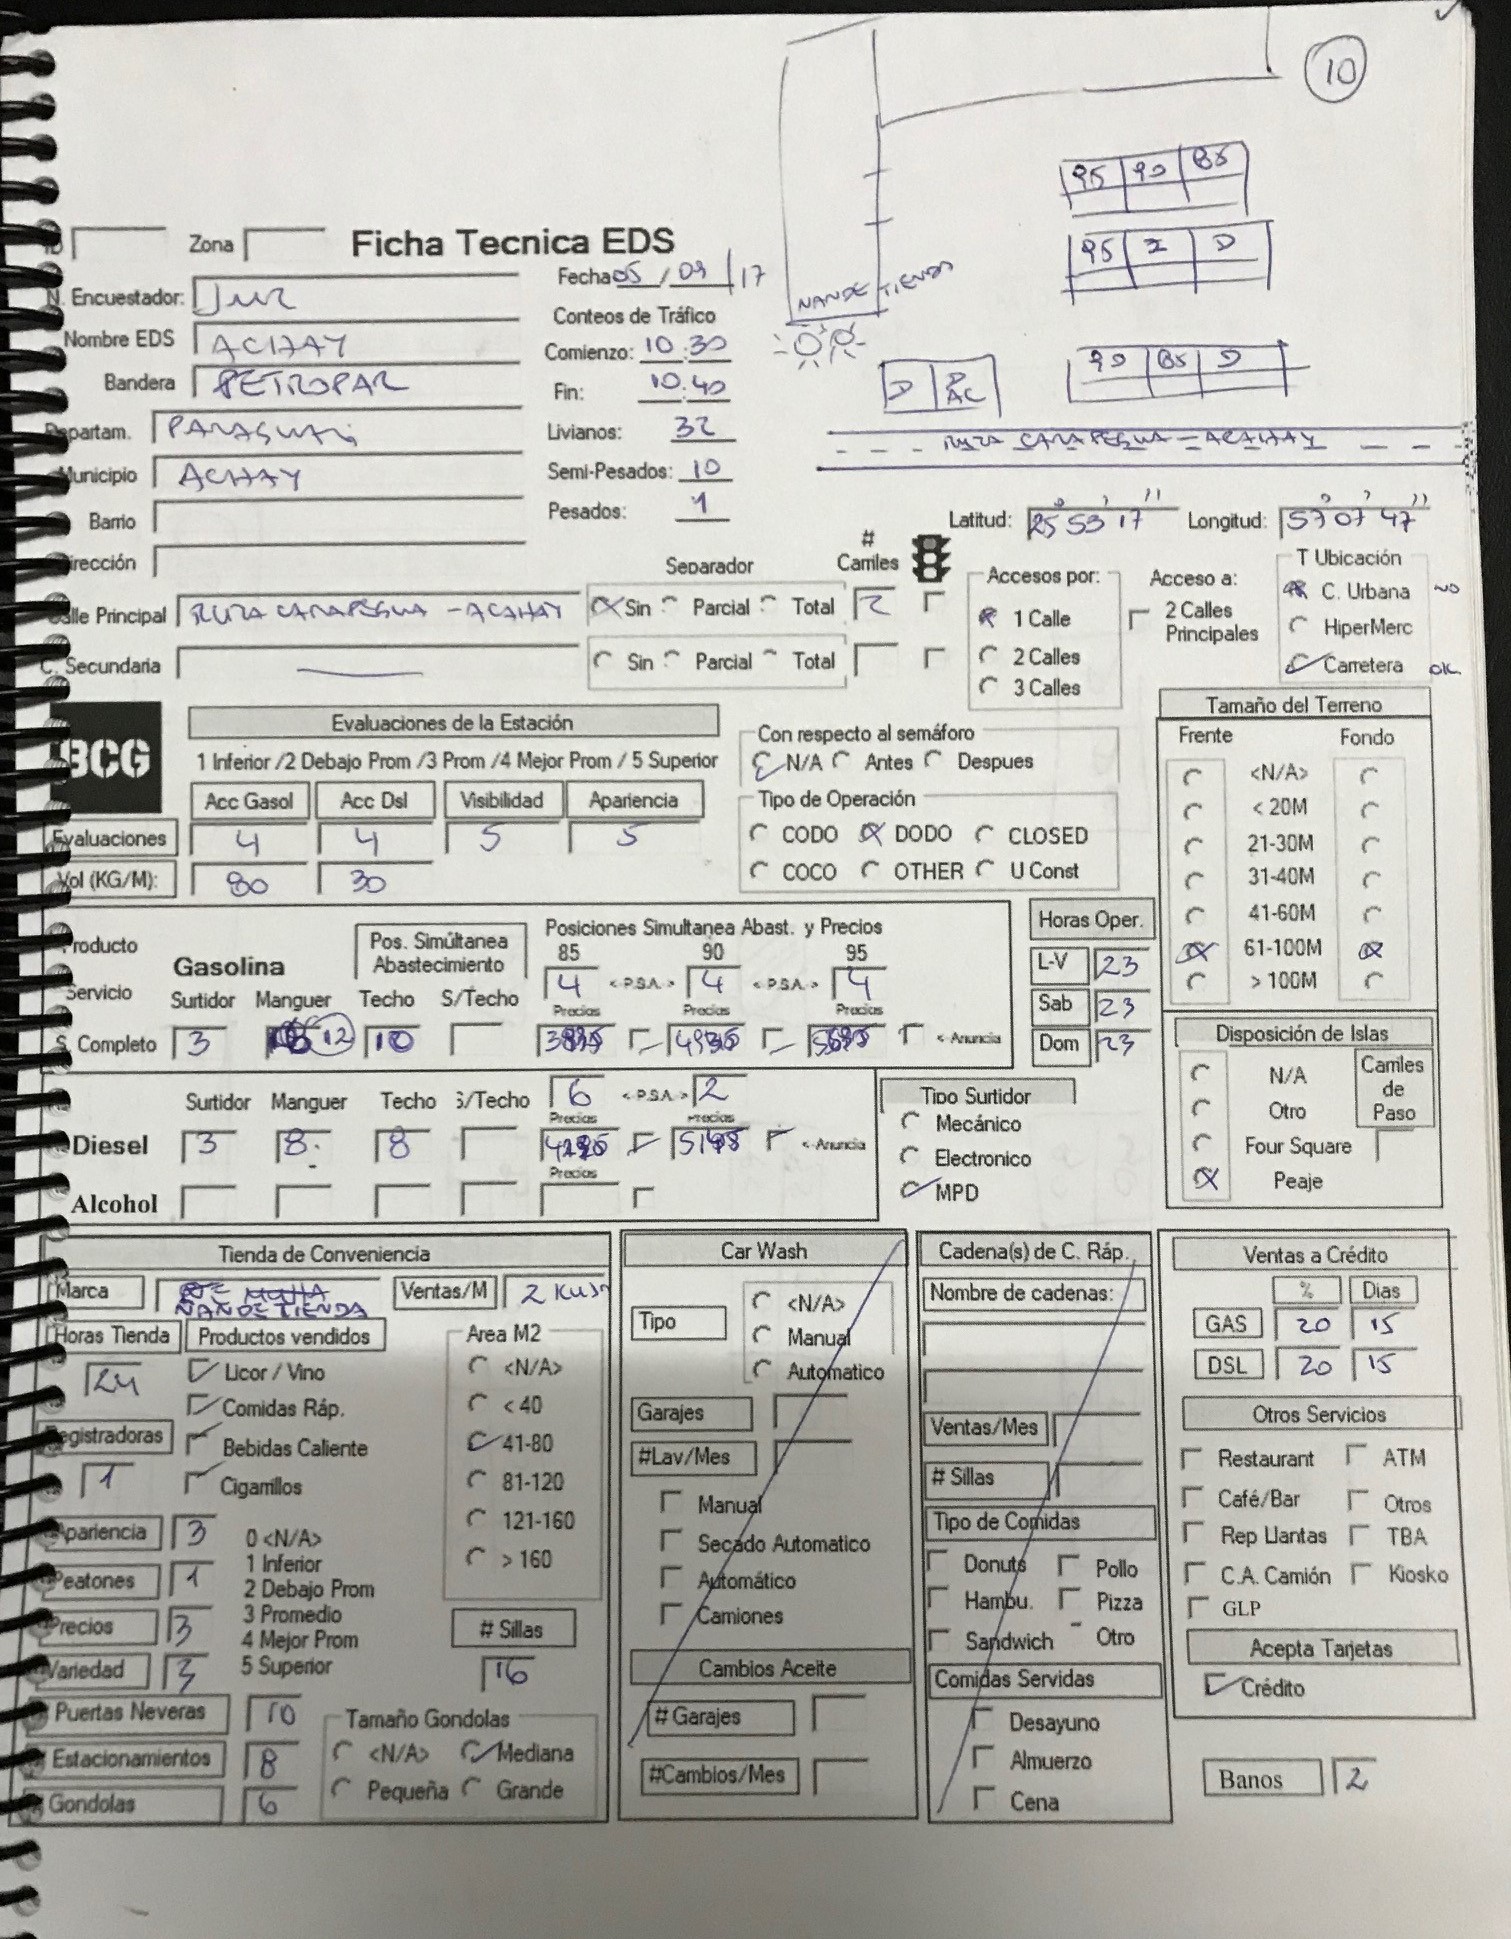 10
95 90 85
95 I D
ÑANDE TIENDA
90 85 D
D D AC
RUTA CARAPEGUA - ACAHAY
Zona
Ficha Tecnica EDS
Fecha 05 / 09 / 17
N. Encuestador:
Conteos de Tráfico
Nombre EDS ACAHAY
Comienzo: 10:30
Bandera PETROPAR
Fin: 10:40
Departam. PARAGUARI
Livianos: 32
Municipio ACAHAY
Semi-Pesados: 10
Barrio
Pesados: 1
Latitud: 25° 53' 17'' Longitud: 57° 07' 47''
Dirección
Separador # Carriles
Accesos por: Acceso a: T Ubicación
Calle Principal RUTA CARAPEGUA - ACAHAY Sin Parcial Total 2
1 Calle 2 Calles Principales C. Urbana NO
HiperMerc
C. Secundaria Sin Parcial Total
2 Calles Carretera OK
3 Calles
BCG
Evaluaciones de la Estación
1 Inferior /2 Debajo Prom /3 Prom /4 Mejor Prom / 5 Superior
Acc Gasol Acc Dsl Visibilidad Apariencia
Evaluaciones 4 4 5 5
Vol (KG/M): 80 30
Con respecto al semáforo
N/A Antes Despues
Tipo de Operación
CODO DODO CLOSED
COCO OTHER U Const
Tamaño del Terreno
Frente Fondo
<N/A>
< 20M
21-30M
31-40M
41-60M
61-100M
> 100M
Producto
Gasolina
Pos. Simúltanea Abastecimiento
Posiciones Simultanea Abast. y Precios
85 90 95
4 <-P.S.A.-> 4 <-P.S.A.-> 4
Servicio Surtidor Manguer Techo S/Techo Precios Precios Precios
S. Completo 3 12 10 <-Anuncia
Horas Oper.
L-V 23
Sab 23
Dom 23
Disposición de Islas
N/A
Otro
Four Square
Peaje
Carriles de Paso
Surtidor Manguer Techo S/Techo 6 <-P.S.A.-> 2
Precios Precios
Diesel 3 8 8 <-Anuncia
Precios
Alcohol
Tipo Surtidor
Mecánico
Electronico
MPD
Tienda de Conveniencia
Marca ÑANDE TIENDA Ventas/M 2 KUSD
Horas Tienda Productos vendidos Area M2
24 Licor / Vino <N/A>
Comidas Ráp. < 40
Registradoras Bebidas Caliente 41-80
1 Cigarrillos 81-120
121-160
> 160
Apariencia 3 0 <N/A>
1 Inferior
Peatones 1 2 Debajo Prom
Precios 3 3 Promedio
4 Mejor Prom
Variedad 3 5 Superior
# Sillas
16
Puertas Neveras 10
Estacionamientos 8
Gondolas 6
Tamaño Gondolas
<N/A> Mediana
Pequeña Grande
Car Wash
Tipo <N/A>
Manual
Automatico
Garajes
#Lav/Mes
Manual
Secado Automatico
Automático
Camiones
Cambios Aceite
# Garajes
#Cambios/Mes
Cadena(s) de C. Ráp.
Nombre de cadenas:
Ventas/Mes
# Sillas
Tipo de Comidas
Donuts Pollo
Hambu. Pizza
Sandwich Otro
Comidas Servidas
Desayuno
Almuerzo
Cena
Ventas a Crédito
% Dias
GAS 20 15
DSL 20 15
Otros Servicios
Restaurant ATM
Café/Bar Otros
Rep Llantas TBA
C.A. Camión Kiosko
GLP
Acepta Tarjetas
Crédito
Banos 2